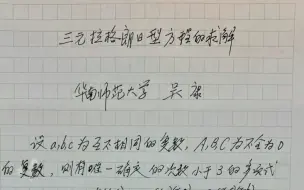 三元拉格朗日型方程的求解
华南师范大学 吴康
设a,b,c为互不相同的复数,A,B,C为不全为0
的复数,则有唯一确定的次数小于3的多项式